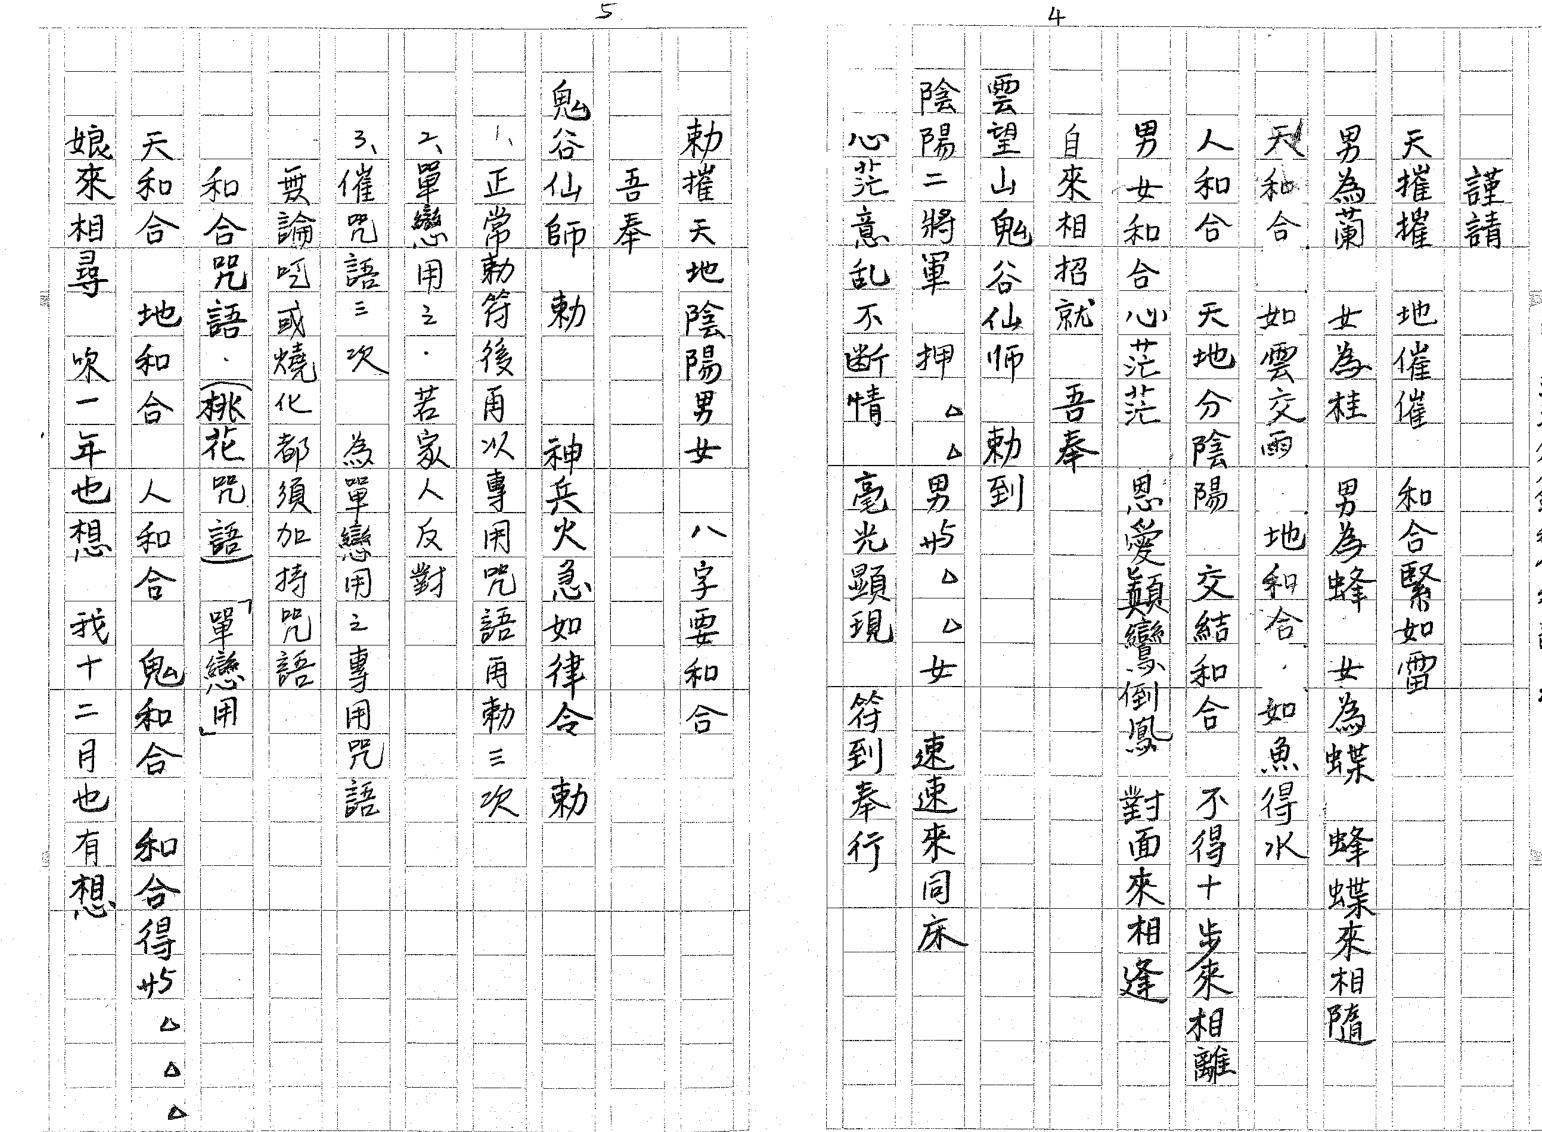 4
謹請
天摧摧 地催催 和合緊如雷
男為蘭 女為桂 男為蜂 女為蝶 蜂蝶來相隨
天和合 如雲交雨 地和合. 如魚得水
人和合 天地分陰陽 交結和合 不得十步來相離
男女和合心茫茫 恩愛顛鸞倒鳳 對面來相逢
自來相招就 吾奉
雲望山鬼谷仙师 勅到
陰陽二將軍 押△△男艿△△女 速速來同床
心茫意乱不断情 毫光顯現 符到奉行
5
勅摧天地陰陽男女 八字要和合
吾奉
鬼谷仙師 勅 神兵火急如律令 勅
1、正常勅符後再以專用咒語再勅三次
2、單戀用之. 若家人反對
3、催咒語三次 為單戀用之專用咒語
無論吃或燒化都須加持咒語
和合咒語.(桃花咒語)「單戀用」
天和合 地和合 人和合 鬼和合 和合得艿△△△
娘來相尋 一年也想 我十二月也有想